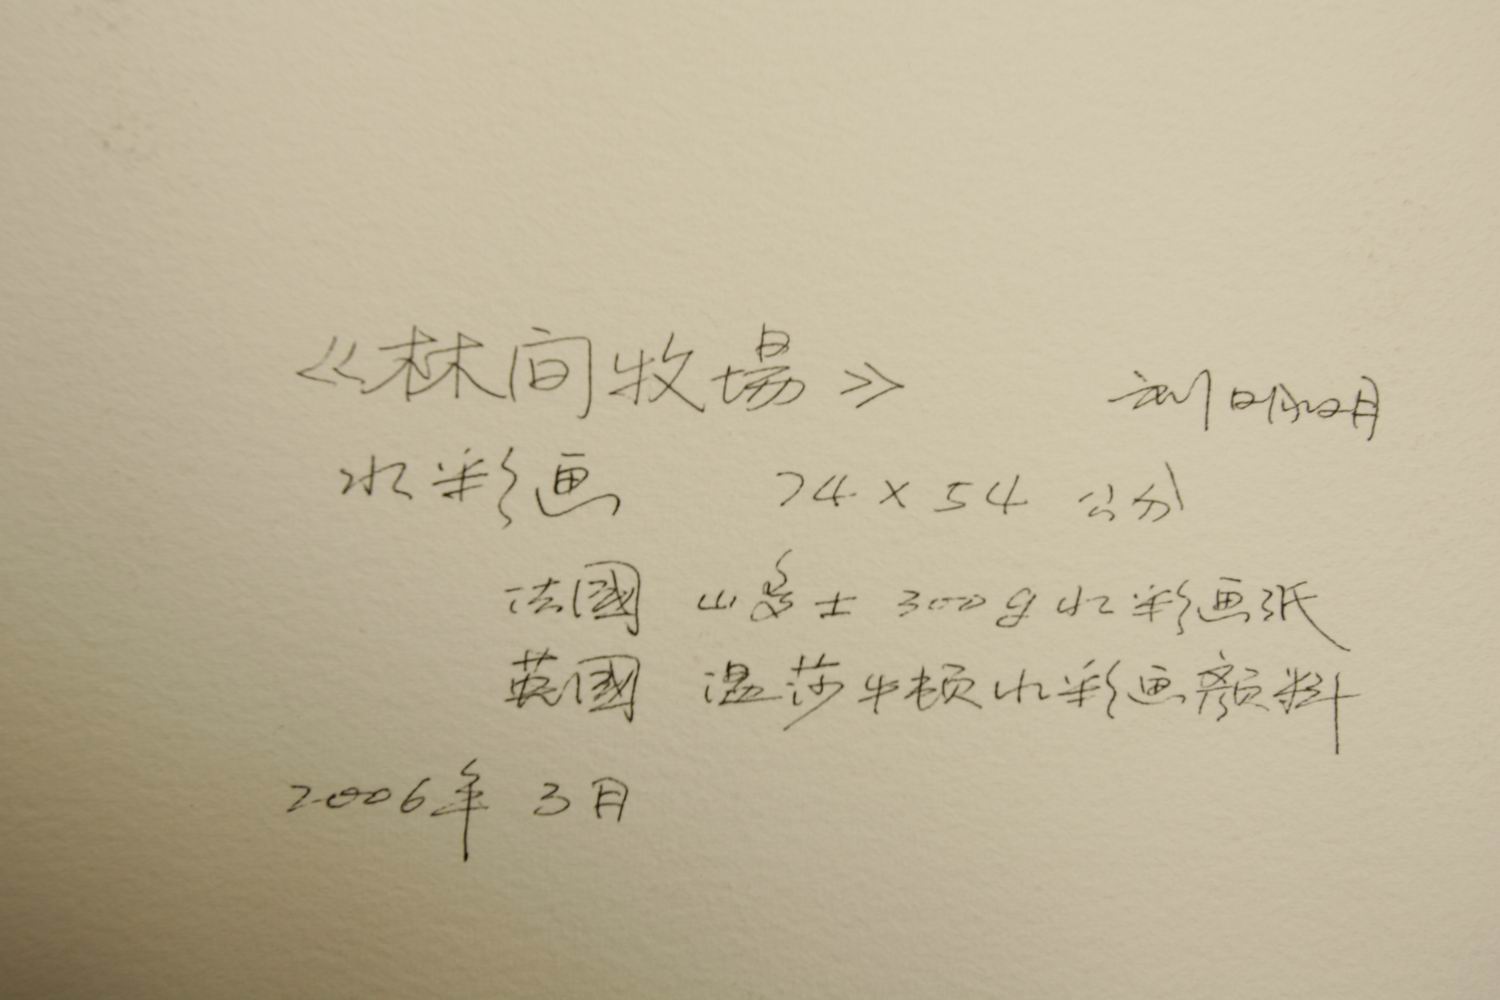 《林间牧場》 刘明明
水彩画 74×54 公分
法國 山多士 300g 水彩画紙
英國 温莎牛顿水彩画颜料
2006年 3月